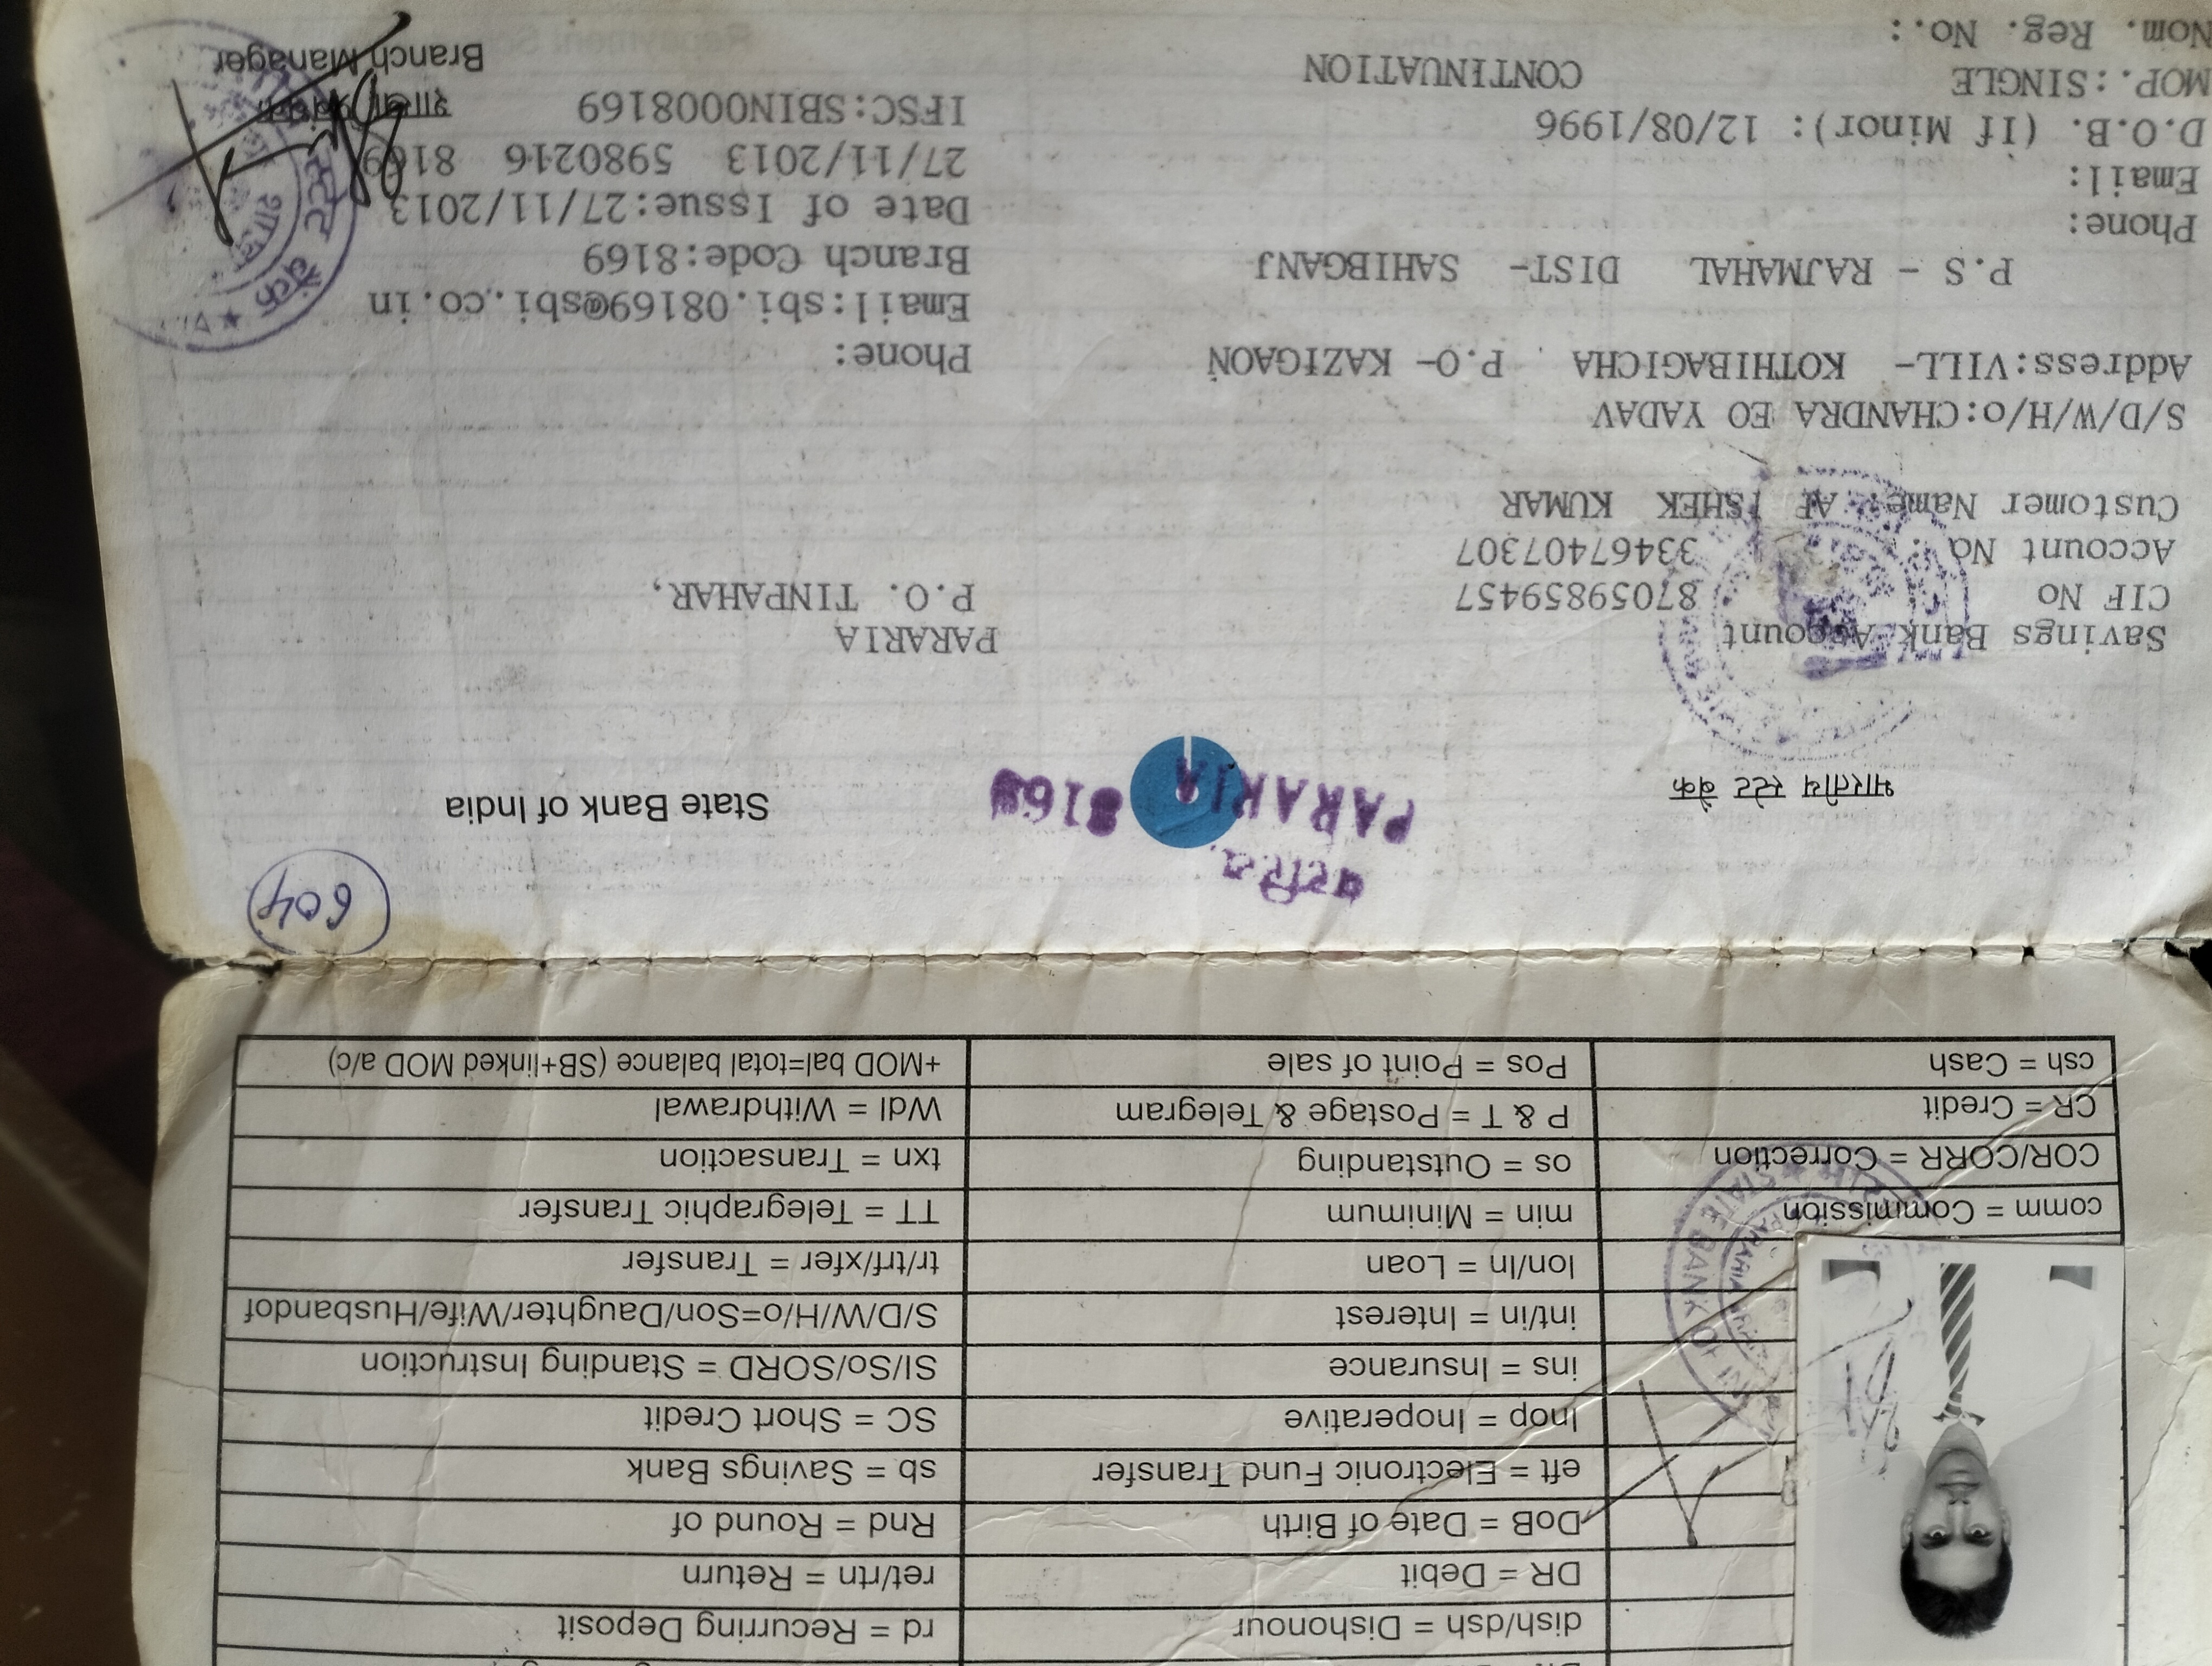 rd = Recurring Deposit
dish/dsh = Dishonour
ret/rtn = Return
DR = Debit
Rnd = Round of
DoB = Date of Birth
sb = Savings Bank
eft = Electronic Fund Transfer
SC = Short Credit
Inop = Inoperative
SI/So/SORD = Standing Instruction
ins = Insurance
S/D/W/H/o=Son/Daughter/Wife/Husbandof
int/in = Interest
tr/trf/xfer = Transfer
lon/ln = Loan
STATE BANK OF
PARARIA
comm = Commission
min = Minimum
TT = Telegraphic Transfer
COR/CORR = Correction
os = Outstanding
txn = Transaction
CR = Credit
P & T = Postage & Telegram
Wdl = Withdrawal
csh = Cash
Pos = Point of sale
+MOD bal=total balance (SB+linked MOD a/c)
604
PARARIA 8169
भारतीय स्टेट बैंक
State Bank of India
Savings Bank Account
PARARIA
CIF No 87059859457
P.O. TINPAHAR,
Account No : 33467407307
Customer Name: SHEK KUMAR
S/D/W/H/o:CHANDRA EO YADAV
Address:VILL- KOTHIBAGICHA P.O- KAZIGAON
Phone:
P.S - RAJMAHAL DIST- SAHIBGANJ
Email:sbi.08169@sbi.co.in
Phone:
Branch Code:8169
Email:
Date of Issue:27/11/2013
D.O.B. (If Minor): 12/08/1996
27/11/2013 5980216 8169
MOP.:SINGLE CONTINUATION
IFSC:SBIN0008169
Nom. Reg. No.:
Branch Manager
स्टेट बैंक